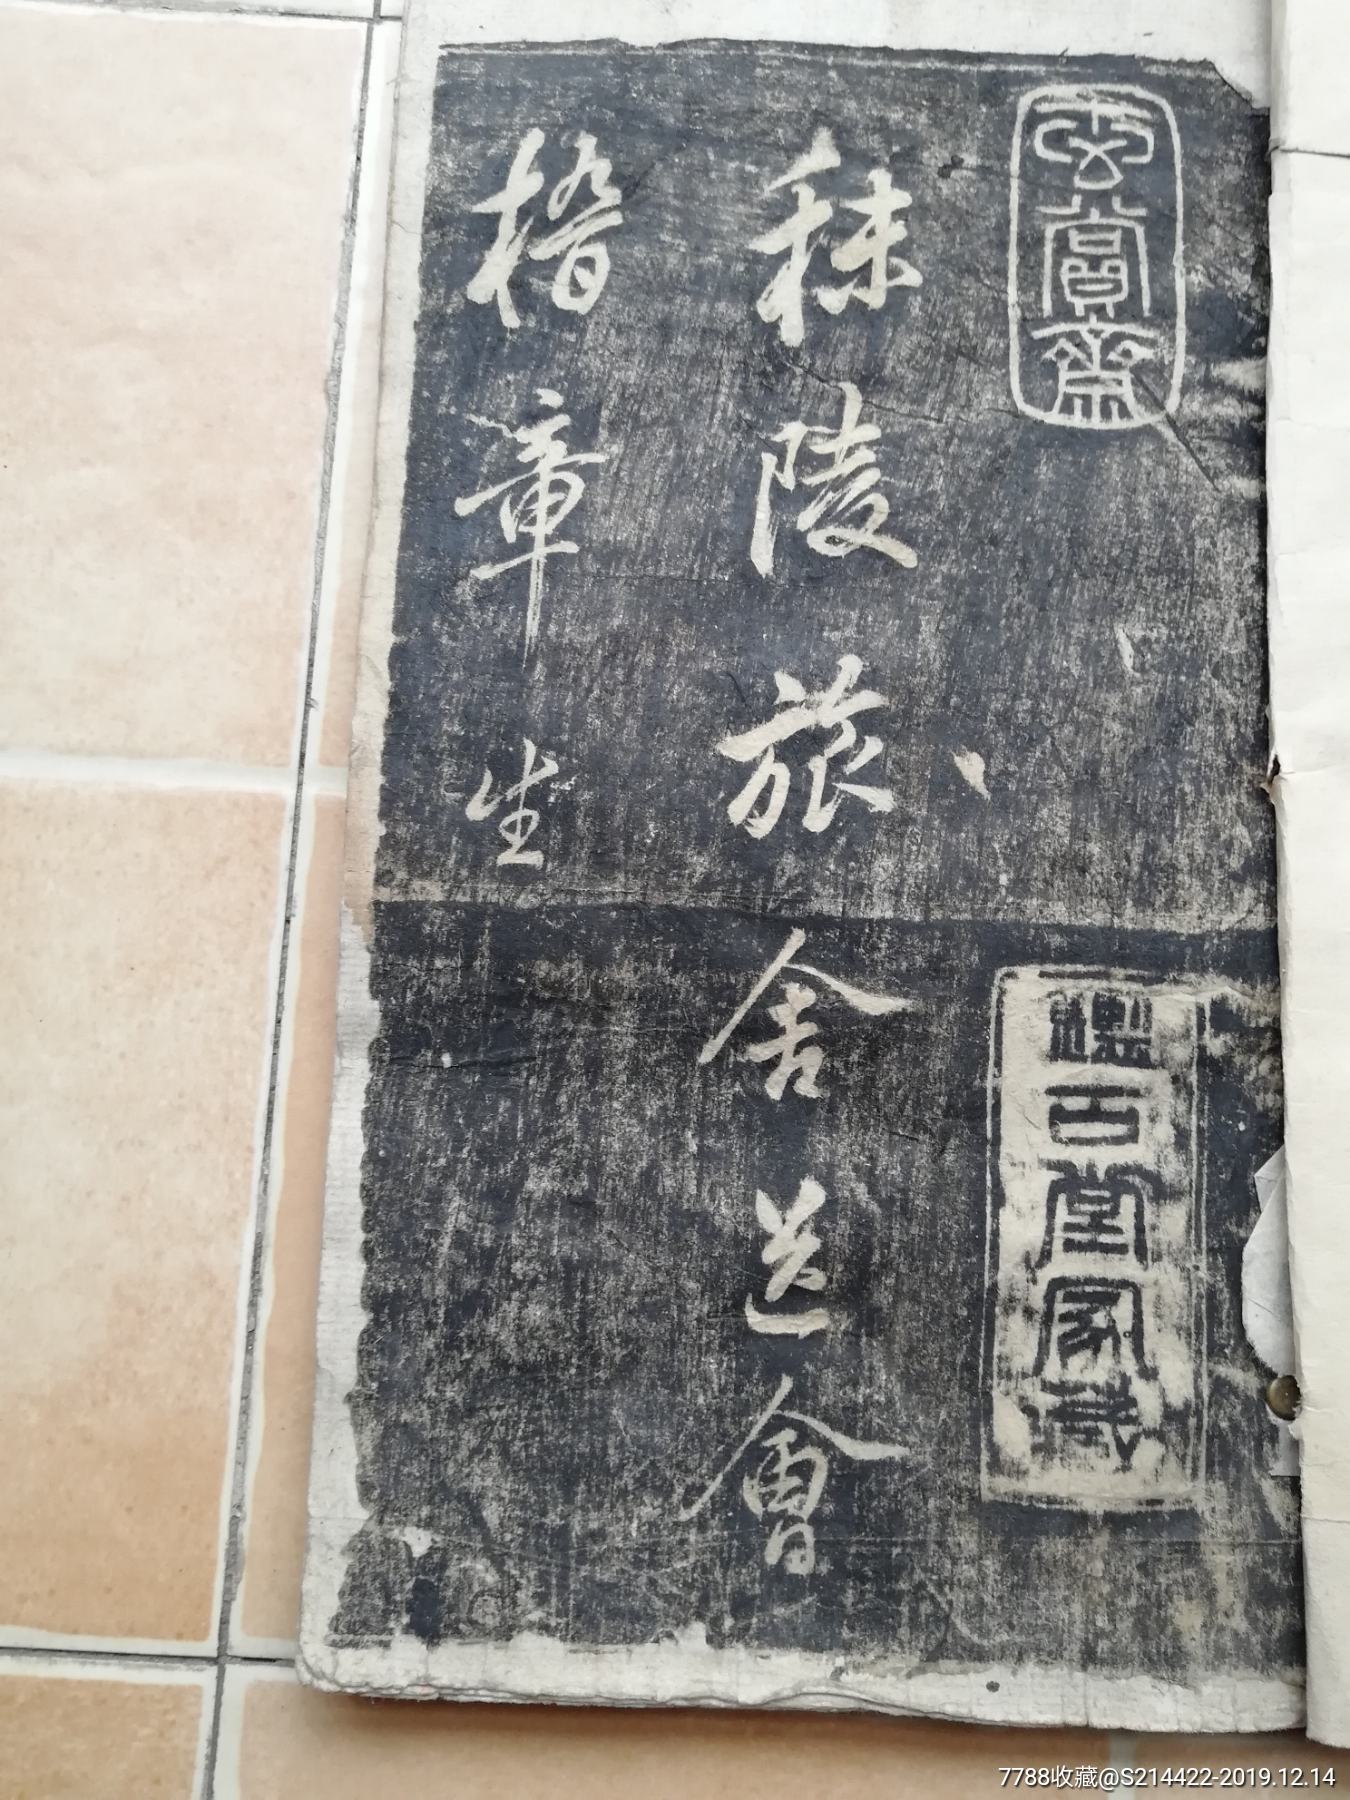 玄賞齋
秣陵旅舍送會
稽章生
古堂家藏
7788收藏@S214422-2019.12.14